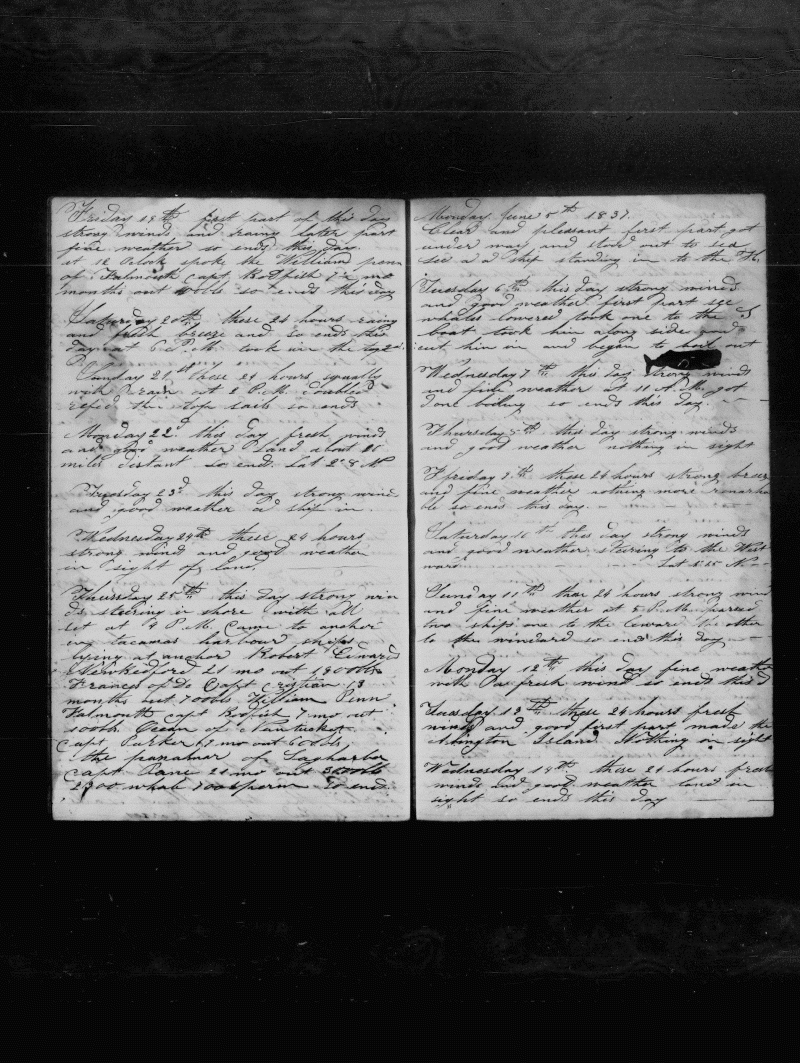 Friday 19th first part of this day
strong winds and rainy later part
fine weather so ends this day
at 12 Oclok spoke the William penn
of Falmouth capt
months out so ends this day
Saturday 20th these 24 hours rainy
and fresh breeze and so ends this
day at 6 P.M. took in the
Sunday 21st these 24 hours squally
with rain at 2 P.M. doubled
refed the top sails so ends
Monday 22d this day fresh winds
and good weather Land about 20
miles distant so ends Lat
Tuesday 23d this day strong wind
and good weather a ship in
Wednesday 24th these 24 hours
strong wind and good weather
in sight of land
Thursday 25th this day strong win
ds steering in shore with all
set at 4 P.M. came to anchor
in tacamas harbour ships
lying at anchor Robert Edward
Newbedford 21 mo out 1800bls
Frances of Do Capt
months out 700bls William Penn
Falmouth capt 7 mo out
100bls Ocean of Nantucket
Capt Parker 7 mo out 600bls
the panamar of Sagharbor
Capt 21 mo out
2300 whale 700 sperm so ends
Monday June 5th 1837.
Clear and pleasant first part got
under way and stood out to sea
see a ship standing in to the
Tuesday 6th this day strong winds
and good weather first part see
whales lowered took one to the
boat took him along side and
cut him in and began to boil out
Wednesday 7th this day strong winds
and fine weather at 11 P.M. got
done boiling so ends this day.
Thursday 8th this day strong winds
and good weather nothing in sight
Friday 9th these 24 hours strong breez
and fine weather nothing more remarka
ble so ends this day.
Saturday 10th this day strong winds
and good weather steering to the West
ward Lat
Sunday 11th these 24 hours strong wind
and fine weather at 5 P.M. passed
two ships one to the leeward the other
to the windard so ends this day
Monday 12th this day fine weather
with fresh wind so ends this d
Tuesday 13th these 24 hours fresh
winds and good first part made the
Abington Island. Nothing in sight
Wednesday 14th these 24 hours fresh
winds and good weather land in
sight so ends this day